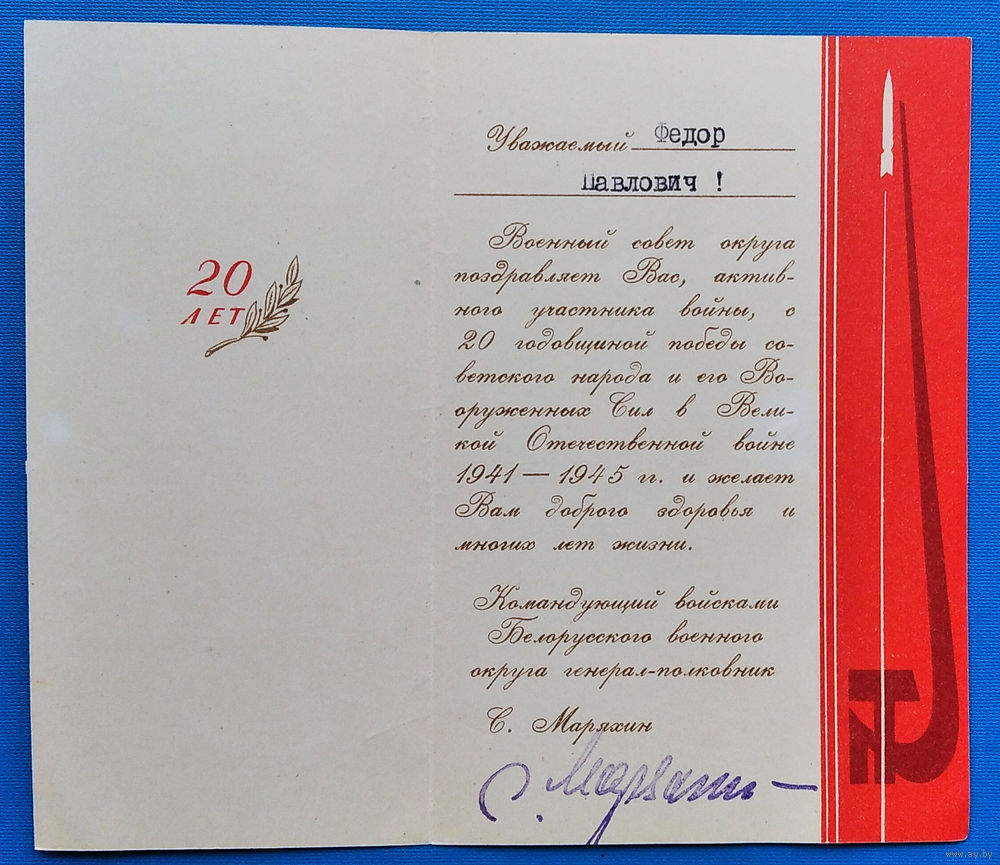 20
ЛЕТ
Уважаемый Федор
Павлович !
Военный совет округа
поздравляет Вас, актив-
ного участника войны, с
20 годовщиной победы со-
ветского народа и его Во-
оруженных Сил в Вели-
кой Отечественной войне
1941 — 1945 гг. и желает
Вам доброго здоровья и
многих лет жизни.
Командующий войсками
Белорусского военного
округа генерал-полковник
С. Маряхин
www.ay.by